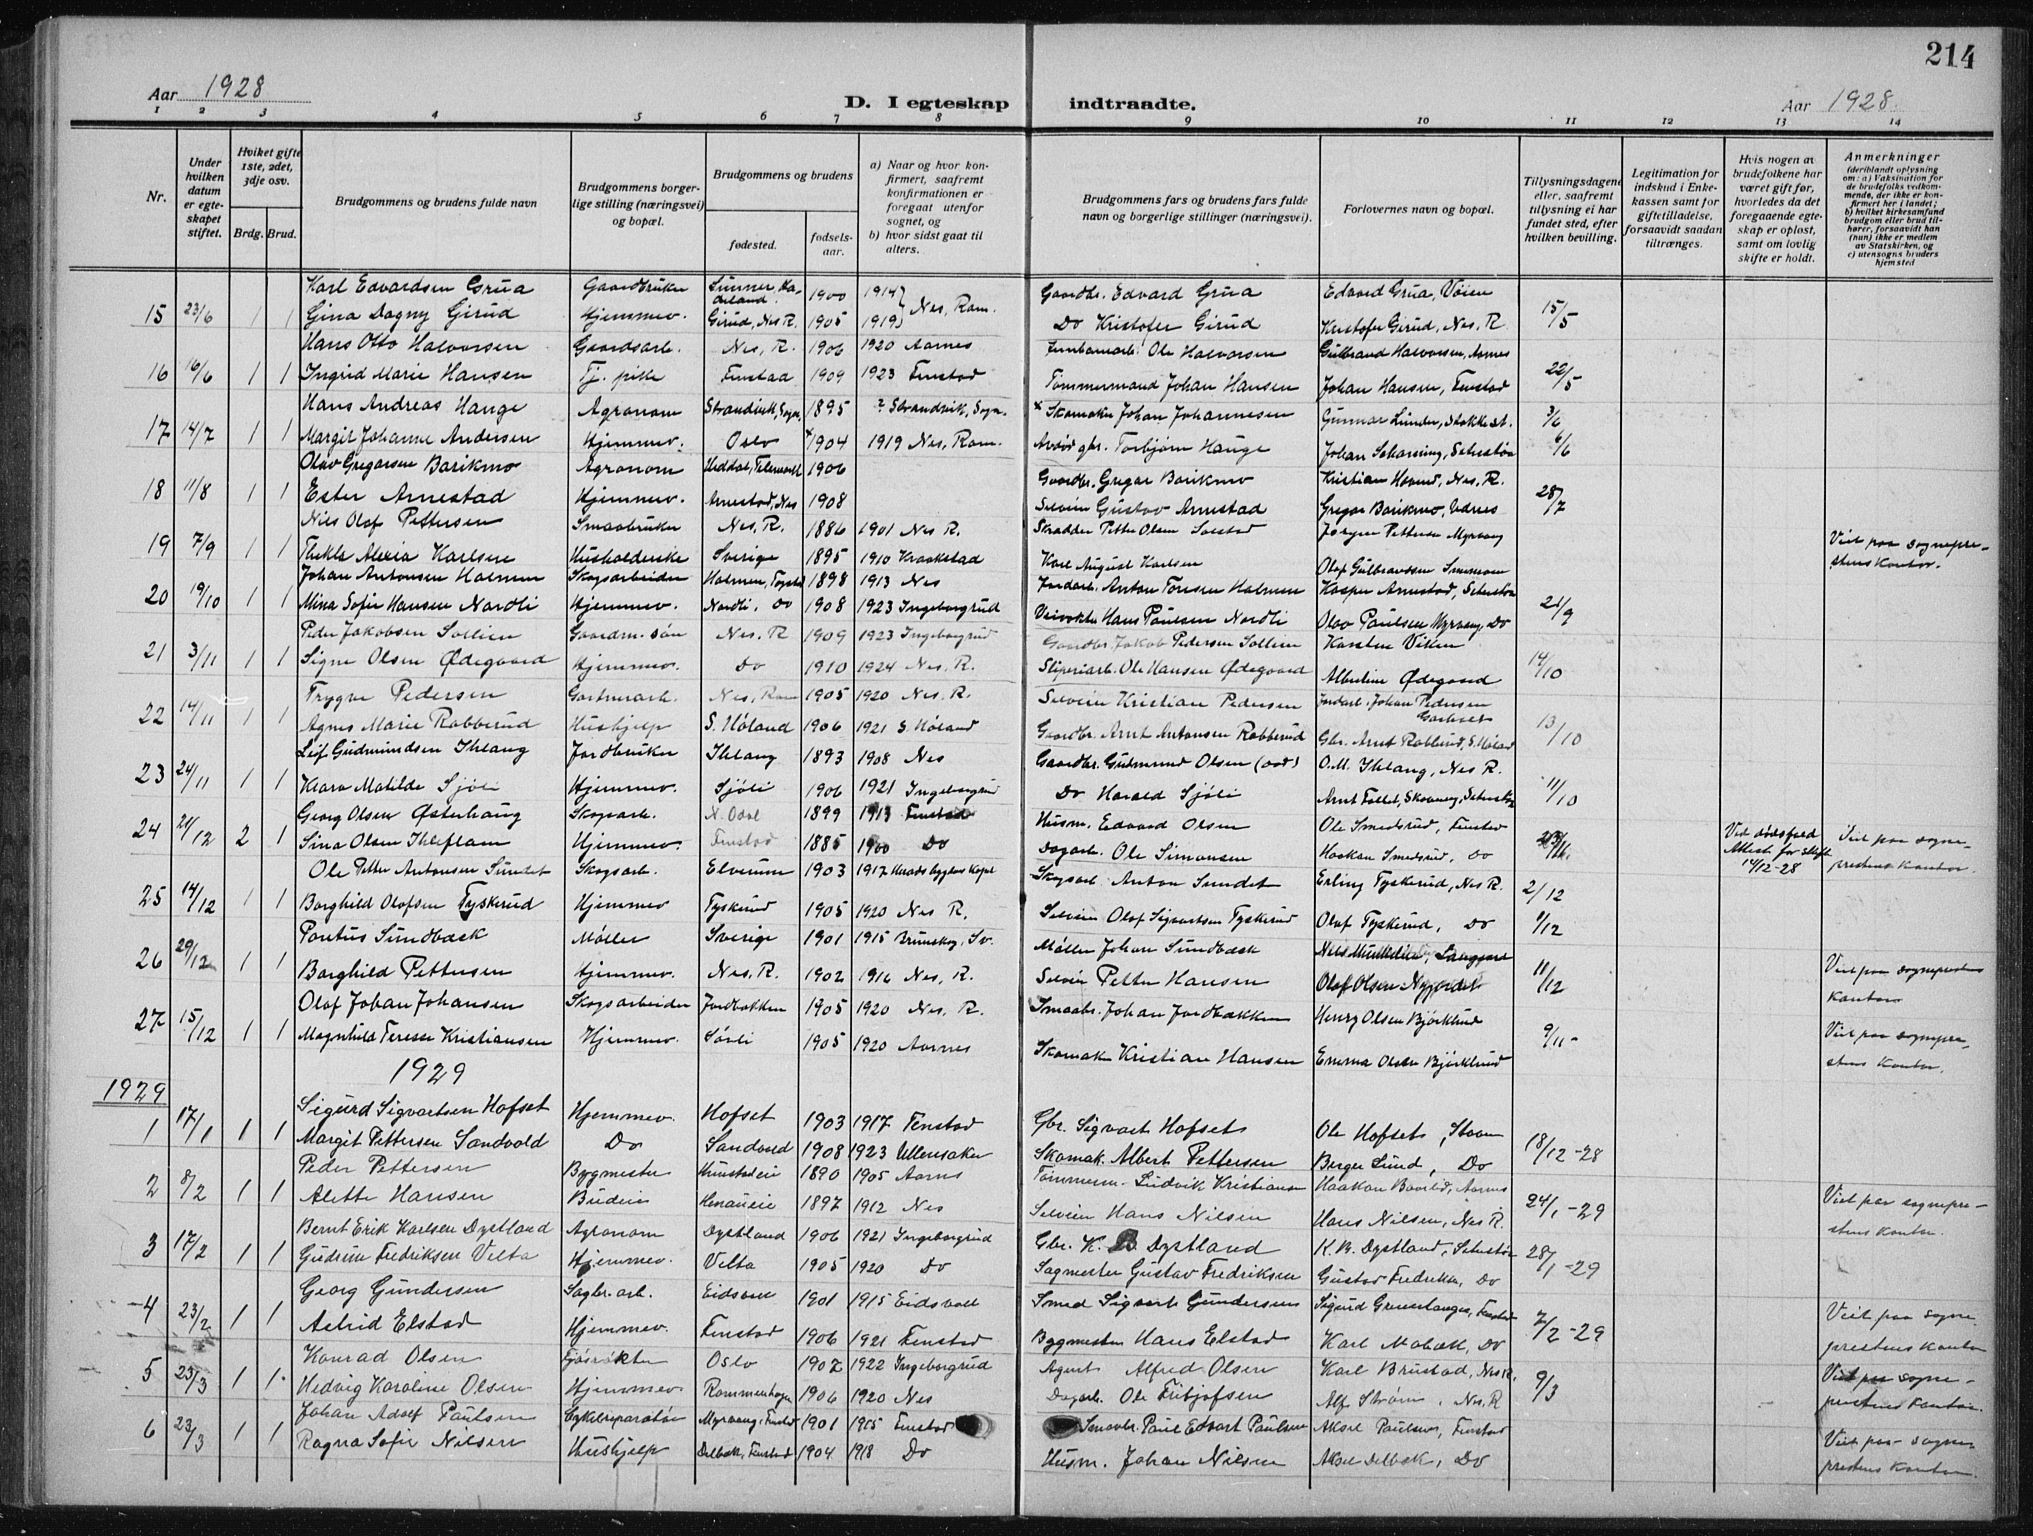 214
Aar 1928
D. I egteskap indtraadte.
Aar 1928.
1 2 3 4 5 6 7 8 9 10 11 12 13 14
Nr.
Under hvilken datum er egteskapet stiftet.
Hviket gifte 1ste, 2det, 3dje osv.
Brdg. Brud.
Brudgommens og brudens fulde navn
Brudgommens borgerlige stilling (næringsvei) og bopæl.
Brudgommens og brudens
fødested.
fødsels-aar.
a) Naar og hvor konfirmert, saafremt konfirmationen er foregaat utenfor sognet, og
b) hvor sidst gaat til alters.
Brudgommens fars og brudens fars fulde navn og borgerlige stillinger (næringsvei).
Forlovernes navn og bopæl.
Tillysningsdagene eller, saafremt tillysning ei har fundet sted, efter hvilken bevilling.
Legitimation for indskud i Enkekassen samt for giftetilladelse, forsaavidt saadan tiltrænges.
Hvis nogen av brudefolkene har været gift før, hvorledes da det foregaaende egteskap er opløst, samt om lovlig skifte er holdt.
Anmerkninger (deriblandt oplysning om: a) Vaksination for de brudefolks vedkommende, der ikke er konfirmert her i landet; b) hvilket kirkesamfund brudgom eller brud tilhører, forsaavidt han (hun) ikke er medlem av Statskirken, og c) utensogns bruders hjemsted
Karl Edvardsen Grua Gaardbruker Lunner, Hadeland. 1900 1914 Gaardbr. Edvard Grua Edvard Grua, Vøien
15 23/6 1 1 Gina Dagny Girud Hjemmev. Girud, Nes R. 1905 1919 Nes, Rom. Do Kristofer Girud Kristofer Girud, Nes, R. 15/5
Hans Otto Halvorsen Gaardsarb. Nes, R. 1906 1920 Aarnes Ole Halvorsen Gulbrand Halvorsen, Aarnes
16 16/6 1 1 Ingrid Marie Hansen Tj. pike Fenstad 1909 1923 Fenstad Tømmermand Johan Hansen Johan Hansen, Fenstad 22/5
Hans Andreas Hauge Agronom Strandvik, Sogn. 1895 ? Strandvik, Sogn. x Skomaker Johan Johannesen Gunnar Lunder, Stokke st. 3/6
17 14/7 1 1 Margit Johanne Andersen Hjemmev. Oslo x1904 1919 Nes, Rom. Torbjørn Hauge Johan Scharning, Seterstøa 6/6
Olav Gregarsen Barikmo Agronom Heddal, Telemark 1906 Gaardbr. Gregar Barikmo Kristian Hovind, Nes, R.
18 11/8 1 1 Ester Arnestad Hjemmev. Arnestad, Nes 1908 Selveier Gustav Arnestad Gregar Barikmo, Udnes 28/7
Nils Olaf Pettersen Smaabruker Nes, R. 1886 1901 Nes R. Skrædder Petter Olsen Jørgen Pettersen Myrvang
19 7/9 1 1 Thekla Alexia Karlsen Husholderske Sverige 1895 1910 Kraakstad Karl August Karlsen Olaf Gulbrandsen Smemoen Veit paa sogneprestens kontor.
Johan Antonsen Holmen Skogsarbeider Holmen, 1898 1913 Nes Jordarb. Anton Tonsen Holmen Kasper Arnestad, Seterstøa
20 19/10 1 1 Mina Sofie Hansen Nordli Hjemmev. Nordli, Do 1908 1923 Ingeborgrud Veivokter Hans Paulsen Nordli Olav Paulsen Myrvang, Do 21/9
Peder Jakobsen Sollien Gaardm. søn Nes, R 1909 1923 Ingeborgrud Gaardbr. Jakob Pedersen Sollien Karsten Viken
21 3/11 1 1 Signe Olsen Ødegaard Hjemmev. Do 1910 1924 Nes, R. Sliperiarb. Ole Hansen Ødegaard Albertine Ødegaard 14/10
Trygve Pedersen Gartnerarb. Nes, Rom 1905 1920 Nes, R. Selveier Kristian Pedersen Jordarb. Johan Pedersen
22 14/11 1 1 Agnes Marie Robberud Hushjelp S. Høland 1906 1921 S. Høland Gaardbr. Arnt Antonsen Robberud Gbr. Arnt Robberud, S. Høland 13/10
Leif Gudmundsen Ihlang Jordbruker Ihlang 1893 1908 Nes Gaardbr. Gudmund Olsen (død) O.M. Ihlang, Nes R.
23 24/11 1 1 Klara Matilde Sjøli Hjemmev. Sjøli 1906 1921 Ingeborgrud Do Harald Sjøli Arnt Seterstøa 11/10
Georg Olsen Østerhaug Skogsarb. N. Odal 1899 1913 Fenstad Husm. Edvard Olsen Ole Smedsrud, Fenstad
24 21/12 2 1 Sina Olsen Hjemmev. Fenstad 1885 1900 Do Dagarb. Ole Simonsen Haakon Smedsrud, Do Ved dødsfald Attest for skifte 14/12-28 Veit paa sogneprestens kontor.
Ole Petter Antonsen Sundet Skogsarb. Elverum 1903 1917 Heradsbygdens Kapel Skogsarb. Anton Sundet Erling Tyskerud, Nes R. 2/12
25 14/12 1 1 Borghild Olofsen Tyskerud Hjemmev Tyskerud 1905 1920 Nes R. Selveier Olof Sigvartsen Tyskerud Olaf Tyskerud, Do 1/12
Pontus Sundbæck Møller Sverige 1901 1915 Brunskog, Sv. Møller Johan Sundbæck Nils
26 29/12 1 1 Borghild Pettersen Hjemmev. Nes, R. 1902 1916 Nes, R. Selveier Petter Hansen Olaf Olsen Nygardet 11/12 Veit paa sogneprestens kontor
Olaf Johan Johansen Skogsarbeider Jordbakken 1905 1920 Nes, R. Smaabr. Johan Jordbakken Henry Olsen Bjørklund
27 15/12 1 1 Magnhild Terese Kristiansen Hjemmev. Sørli 1905 1920 Aarnes Skomak Kristian Hansen Emma Olsen Bjørklund 9/11- Veit paa sogneprestens kontor.
1929
1929
Sigurd Sigvartsen Hofset Hjemmev. Hofset 1903 1917 Fenstad Gbr. Sigvart Hofset Ole Hofset,
1 17/1 1 1 Margit Pettersen Sandvold Do Sandvold 1908 1923 Ullensaker Skomak. Albert Pettersen Berger Lund, Do 18/12-28
Peder Pettersen Bygmester 1890 1905 Aarnes Tømmerm. Ludvik Kristiansen Haakon Aarnes
2 8/2 1 1 Alette Hansen Budeie 1897 1912 Nes Selveier Hans Nilsen Hans Nilsen, Nes R. 24/1-29 Veit paa sogneprestens kontor.
Bernt Erik Karlsen Dystland Agronom Dystland 1906 1921 Ingeborgrud Gbr. K. B Dystland K. B. Dystland, Seterstøa
3 17/2 1 1 Gudrun Fredriksen Velta Hjemmev. Velta 1905 1920 Do Sagmester Gustav Fredriksen Gustav Fredriksen, Do 28/1-29
Georg Gundersen Sagbr. arb. Eidsvoll 1901 1915 Eidsvoll Smed Sigvart Gundersen Sigurd Fenstad
4 23/2 1 1 Astrid Elstad Hjemmev. Fenstad 1906 1921 Fenstad Bygmester Hans Elstad Karl Do 2/2-29 Veit paa sogneprestens kontor
Konrad Olsen Fjøsrøkter Oslo 1907 1922 Ingeborgrud Agent Alfred Olsen Karl Brustad, Nes R.
5 23/3 1 1 Hedvig Karoline Olsen Hjemmev. Rammenhagen 1906 1920 Nes Dagarb. Ole Fritjofsen Alf Strøm, Nes, R 9/3 Veit paa sogneprestens kontor.
Johan Adolf Paulsen Cykelreparatør Myrvang, Fenstad 1901 1915 Fenstad Smaabr. Paul Edvart Paulsen Aksel Paulsen, Fenstad
6 23/3 1 1 Ragna Sofie Nilsen Hushjelp Delbæk, Fenstad 1904 1918 Do Husm. Johan Nilsen Aksel Delbæk, Do Veit paa sogneprestens kontor.